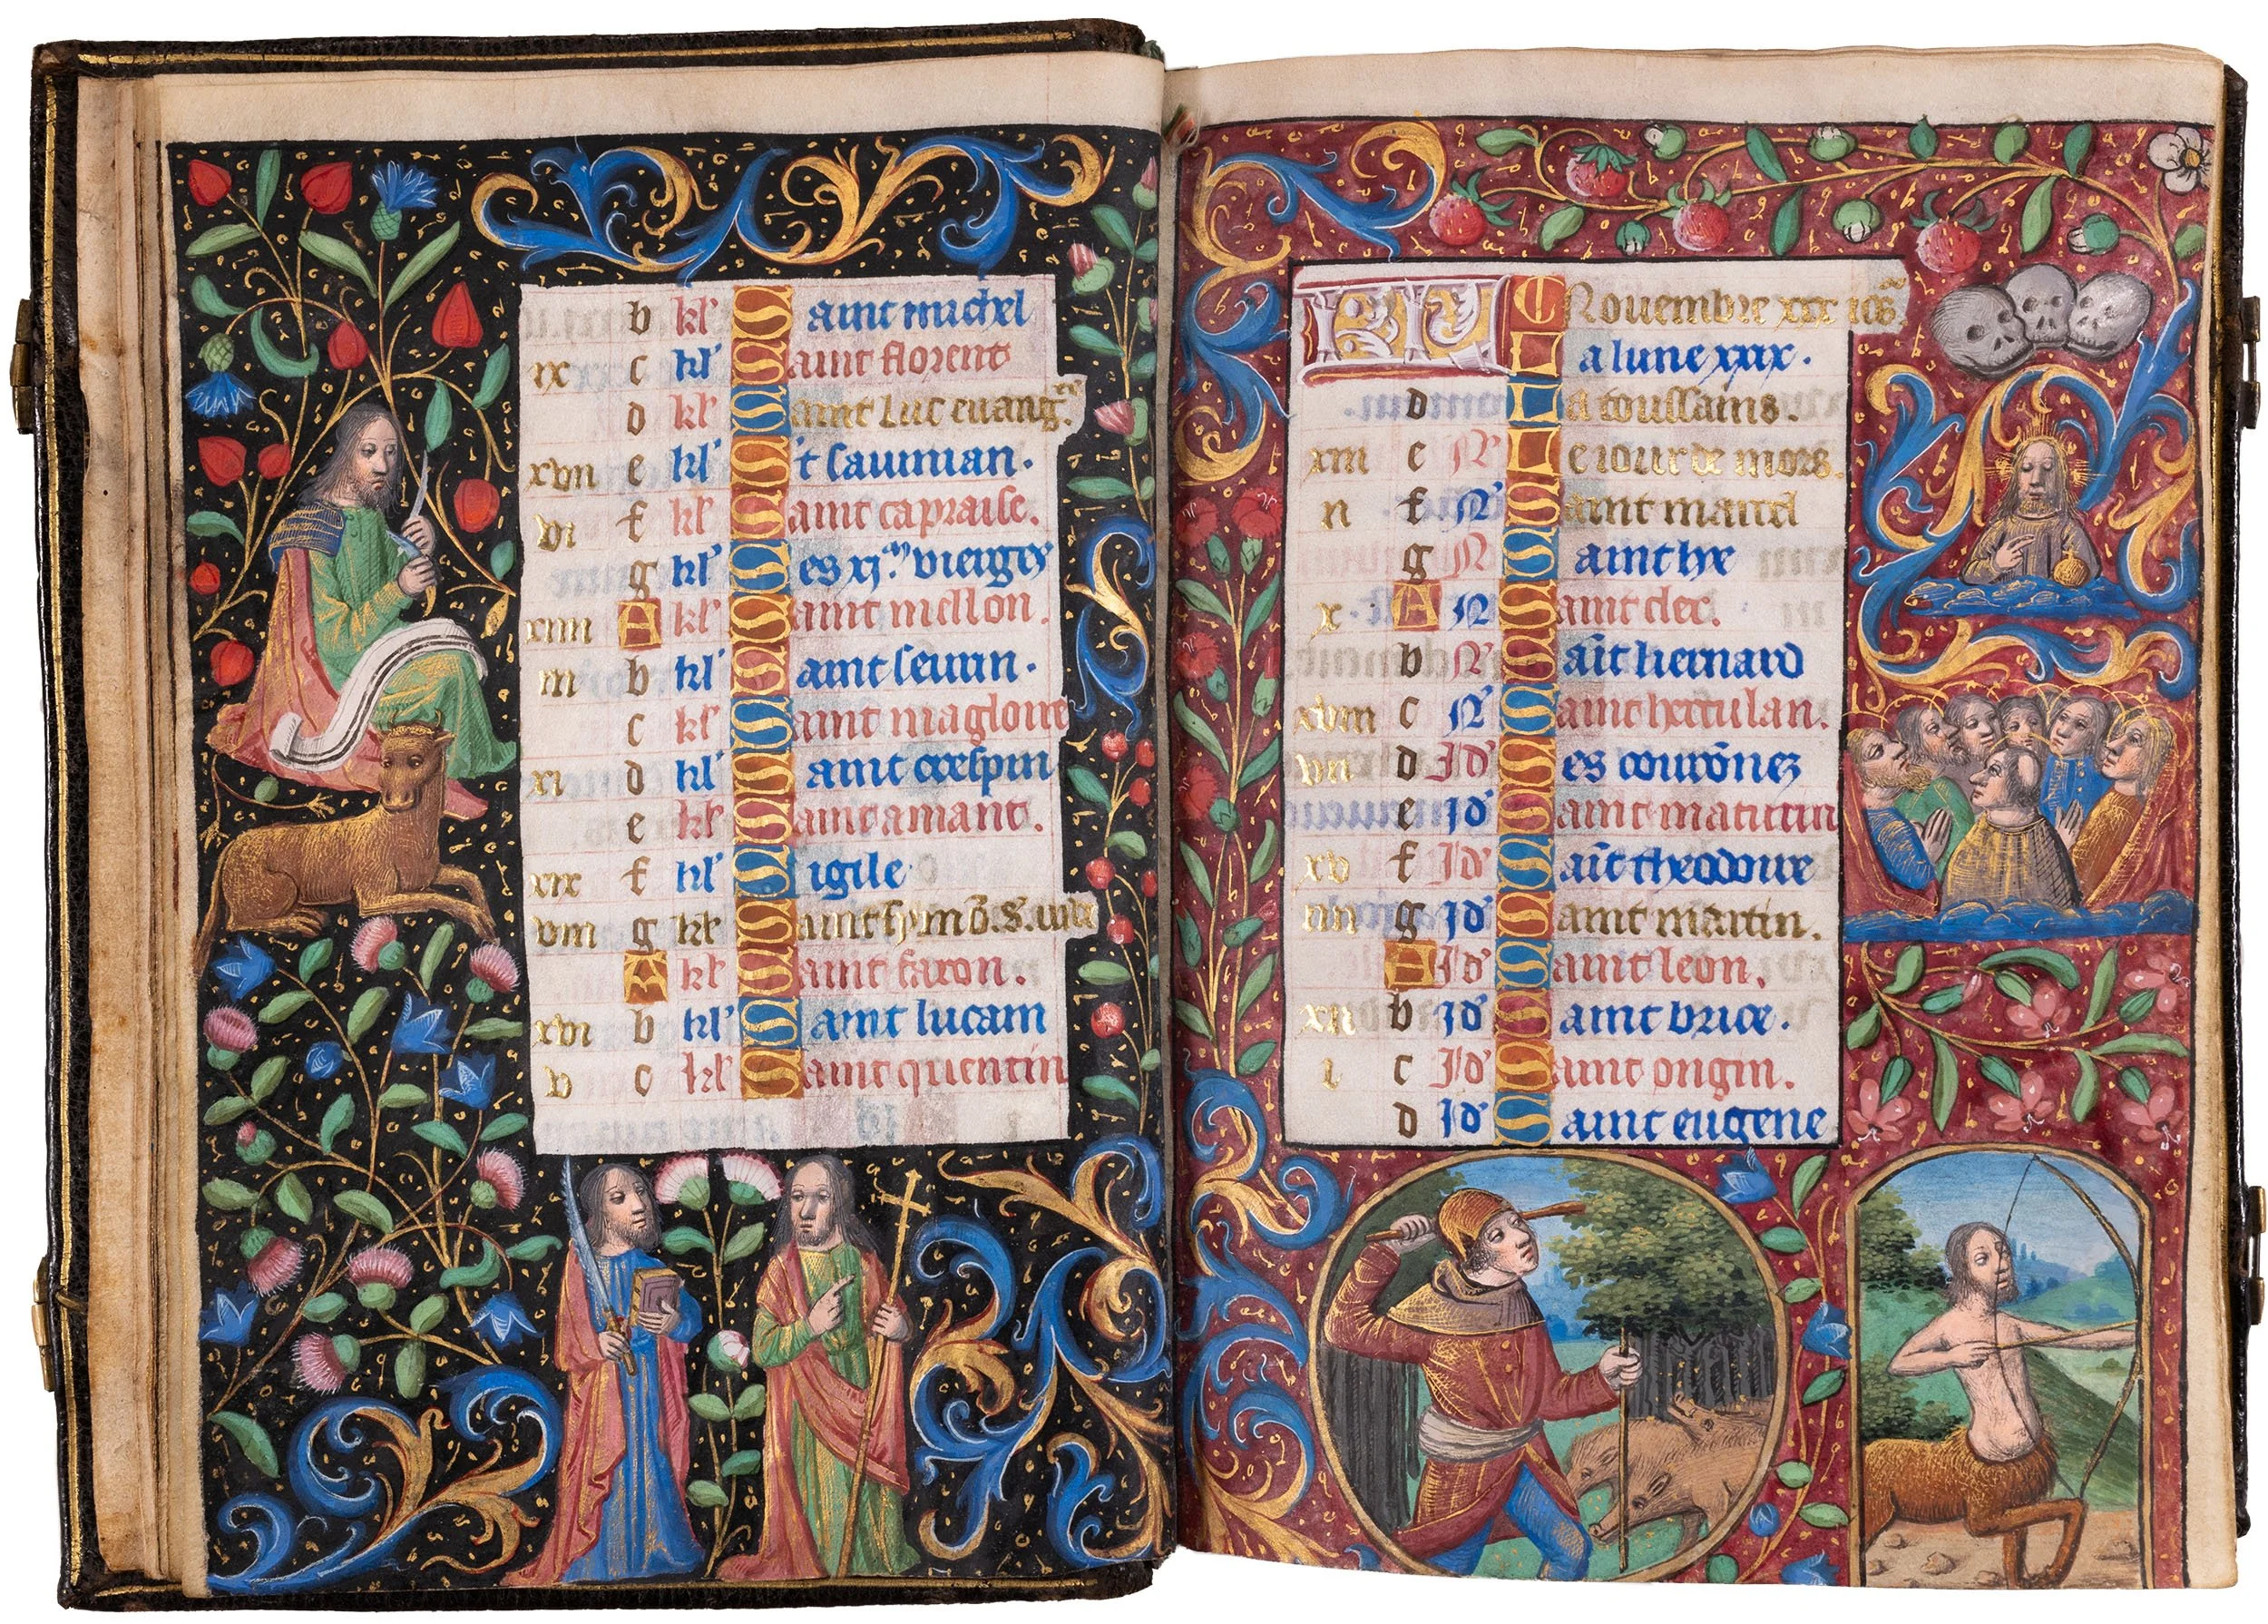 b kl' Saint michel
ix c kl' Saint florent
d kl' Saint luc euang.
xvii e kl' S't sauinian.
vi f kl' Saint capraise.
g kl' Les xj. m vierges
xiiii A kl' Saint mellon.
iii b kl' Saint seurin.
c kl' Saint magloire
xi d kl' Saint crespin
e kl' Saint amant.
xix f kl' Vigile
viii g kl' Saint symo. s. iude
A kl' Saint faron.
xvi b kl' Saint lucain
v c kl' Saint quentin
KL Nouembre xxx iôs.
La lune xxix.
d La toussains.
xiii e N' Le iour de mors.
ii f N' Saint marcel
g N' Saint
x A N' Saint cler.
b N' Saīt bernard
xviii c N' Saint herculan.
vii d Id' Les courōnez
e Id' Saint maturin
xv f Id' Saīt theodoire
iiii g Id' Saint martin.
A Id' Saint leon.
xii b Id' Saint brice.
i c Id' Saint ongin.
d Id' Saint eugene